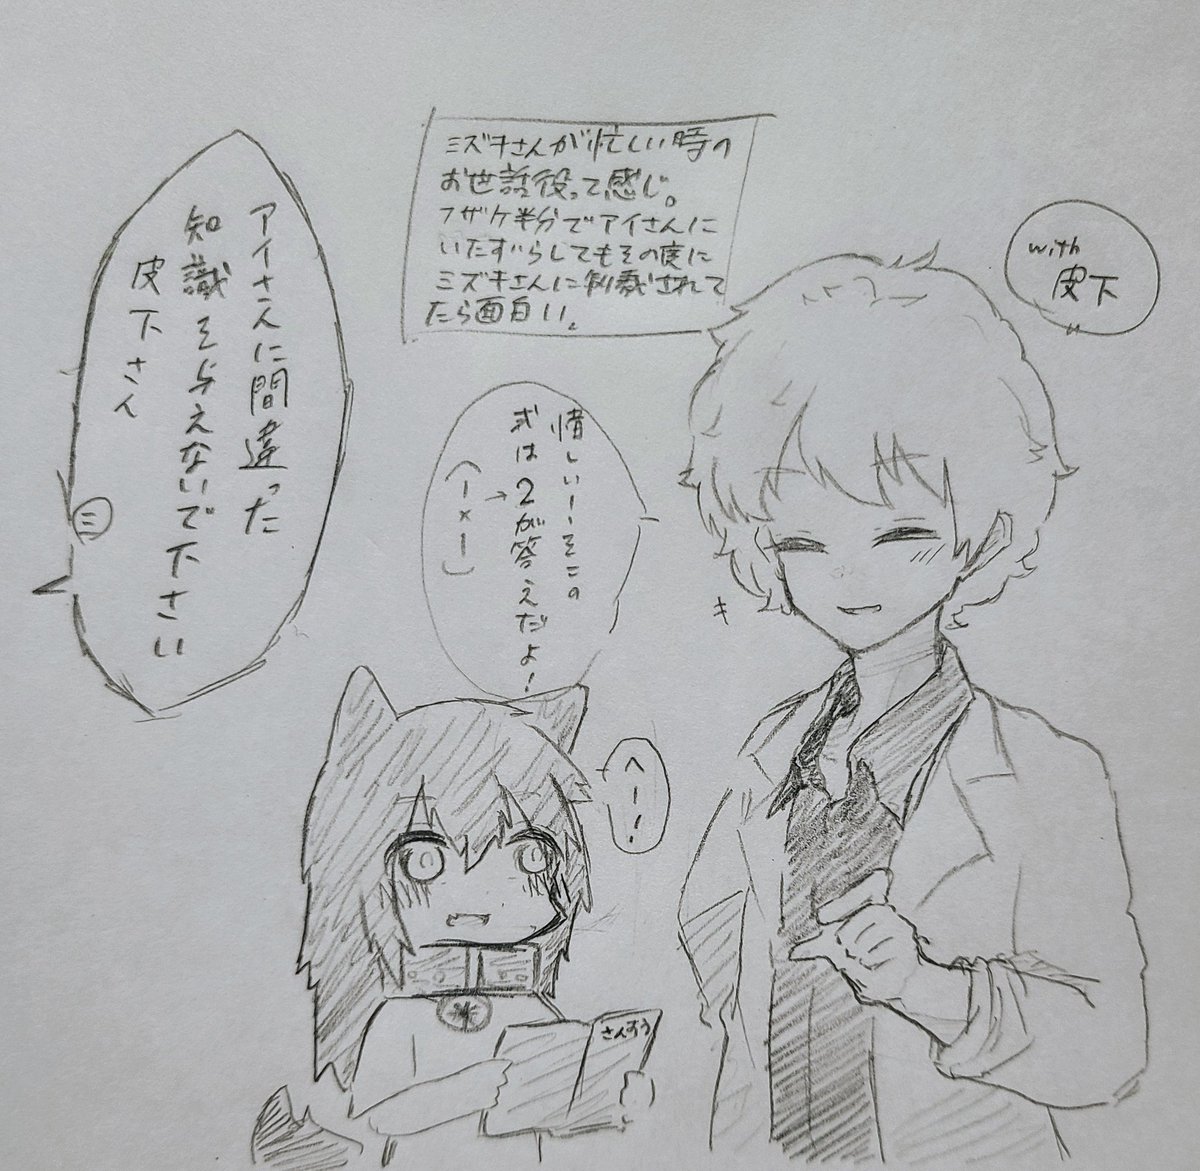 ミズキさんが忙しい時の
お世話役って感じ。
フザケ半分でアイさんに
いたずらしてもその度に
ミズキさんに制裁されて
たら面白い。
with
皮下
アイさんに間違った
知識を与えないで下さい
皮下さん
ミ
惜しいーそこの
式は2が答えだよ!
(1×1)
へー!
キ
さんすう